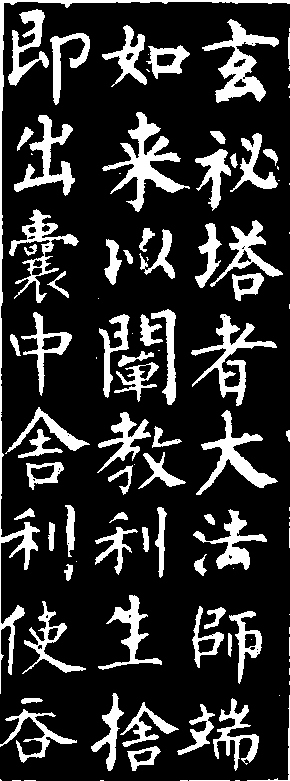 玄秘塔者大法師端
如来以闡教利生捨
即出囊中舎利使吞